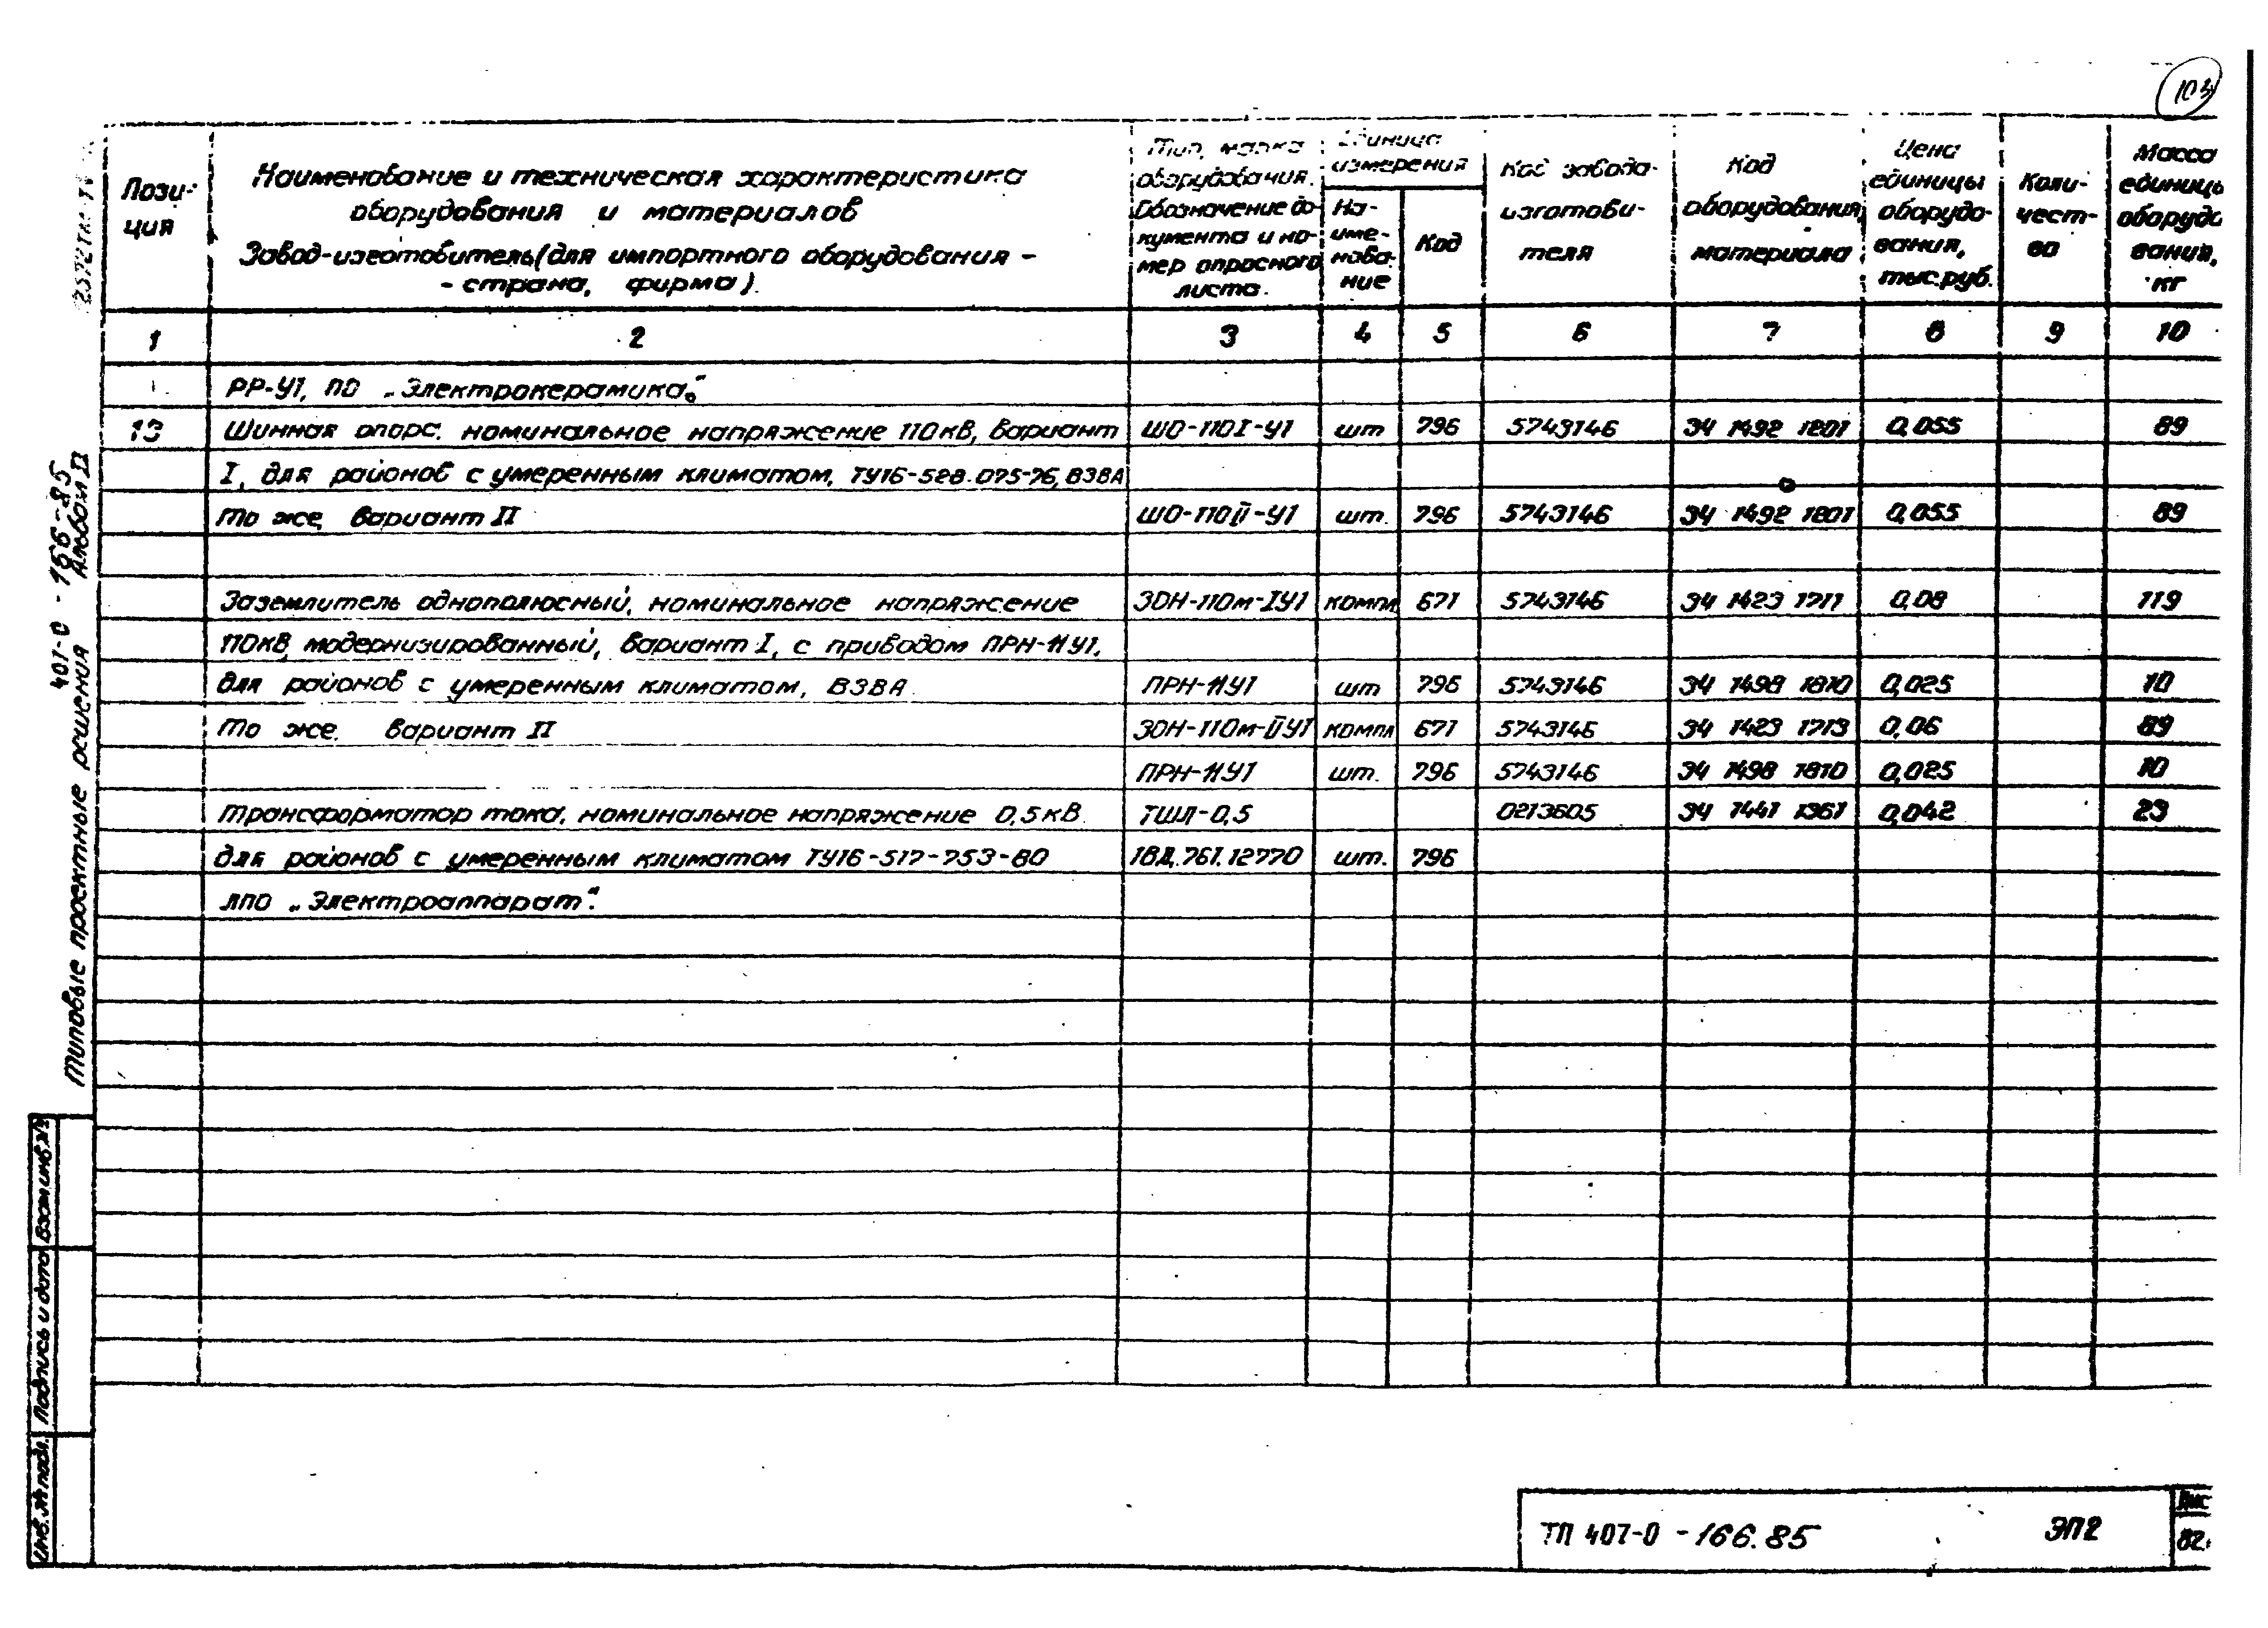 103
Пози-
ция
Наименование и техническая характеристика
оборудования и материалов
Завод-изготовитель (для импортного оборудования -
- страна, фирма).
Тип, марка
оборудования.
Обозначение до-
кумента и но-
мер опросного
листа.
Единица
измерения
На-
име-
нова-
ние
Код
Код завода-
изготови-
теля
Код
оборудования,
материала
Цена
единицы
оборудо-
вания,
тыс.руб.
Коли-
чест-
во
Масса
единицы
оборудо
вания,
кг
1 2 3 4 5 6 7 8 9 10
РР-У1, ПО „Электрокерамика".
13 Шинная опора, номинальное напряжение 110кВ, вариант ШО-110I-У1 шт 796 5743146 34 1492 1201 0,055 89
I, для районов с умеренным климатом, ТУ16-528.075-76, ВЗВА
То же, вариант II ШО-110II-У1 шт. 796 5743146 34 1492 1801 0,055 89
Заземлитель однополюсный, номинальное напряжение ЗОН-110м-IУ1 компл 671 5743146 34 1423 1711 0,08 119
110кВ, модернизированный, вариант I, с приводом ПРН-11У1,
для районов с умеренным климатом, ВЗВА. ПРН-11У1 шт 796 5743146 34 1498 1810 0,025 10
То же. вариант II ЗОН-110м-IIУ1 компл 671 5743146 34 1423 1713 0,06 89
ПРН-11У1 шт. 796 5743146 34 1498 1810 0,025 10
Трансформатор тока, номинальное напряжение 0,5кВ. ТШЛ-0,5 0213605 34 1441 1361 0,042 23
для районов с умеренным климатом ТУ16-517-753-80 1ВД.761.12770 шт. 796
ЛПО „Электроаппарат".
Типовые проектные решения 407-0-166-85
Альбом II
Инв.№ подл.
Подпись и дата
Взам инв.№
ТП 407-0-166.85 ЭП2
Лис
82